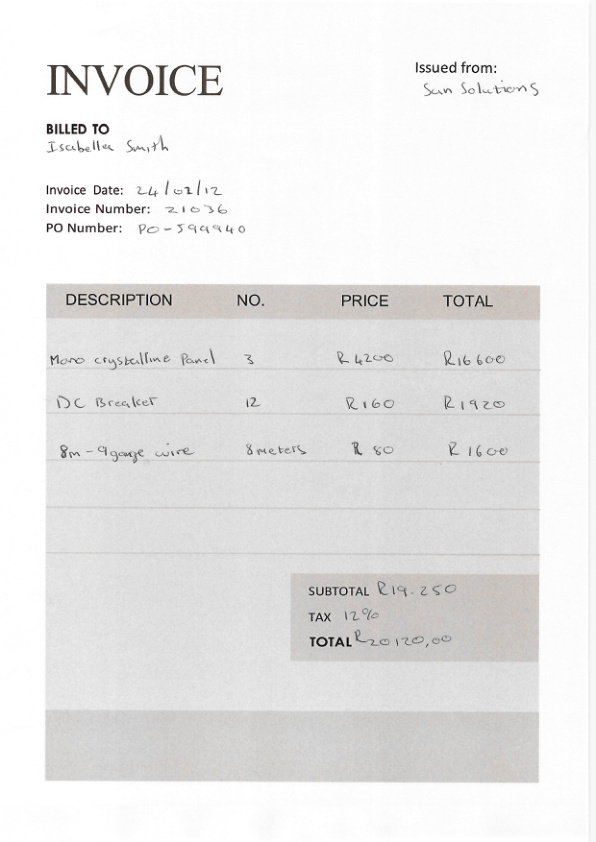 INVOICE
Issued from:
Sun Solutions
BILLED TO
Isabella Smith
Invoice Date: 24/02/12
Invoice Number: 21036
PO Number: PO-599940
DESCRIPTION NO. PRICE TOTAL
Mono crystalline Panel 3 R4200 R16600
DC Breaker 12 R160 R1920
8m-9gauge wire 8meters R80 R1600
SUBTOTAL R19.250
TAX 12%
TOTAL R20120,00